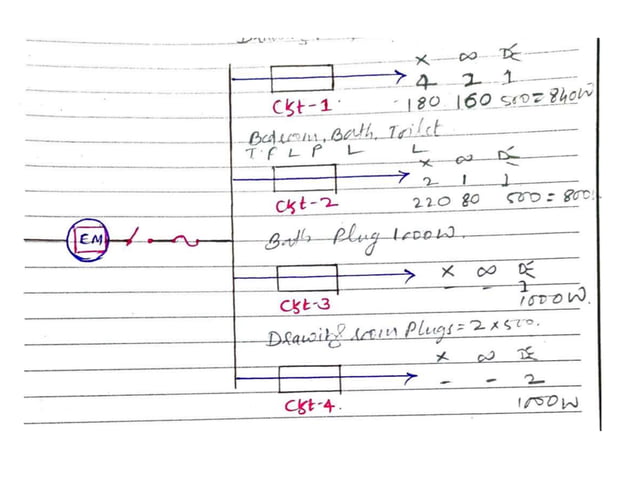 Drawing
X ∞ DE
4 2 1
Ckt-1 180 160 500 = 840W
Bedroom, Bath, Toilet
T F L P L L
X ∞ DE
2 1 1
Ckt-2 220 80 500 = 800
EM
Bath Plug 1000W.
X ∞ DE
- - 1
Ckt-3 1000W.
Drawing room Plugs = 2 x 500.
X ∞ DE
- - 2
Ckt-4. 1000W